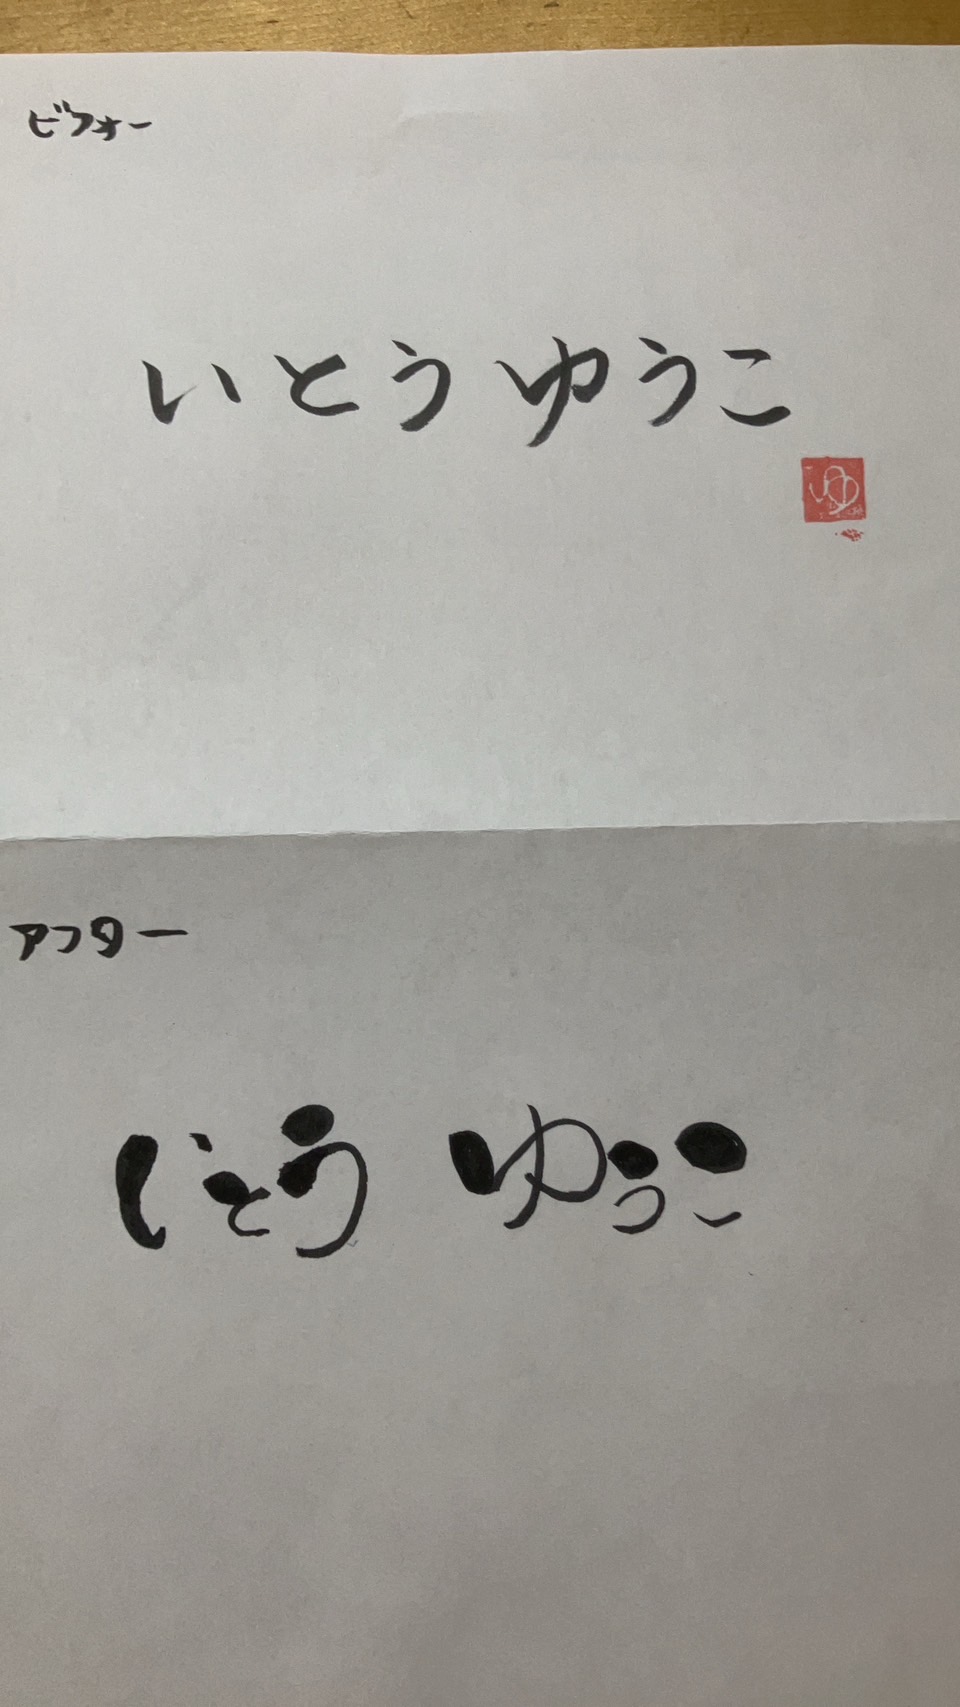 ビフォー
いとう ゆうこ
ゆ
アフター
いとう ゆうこ